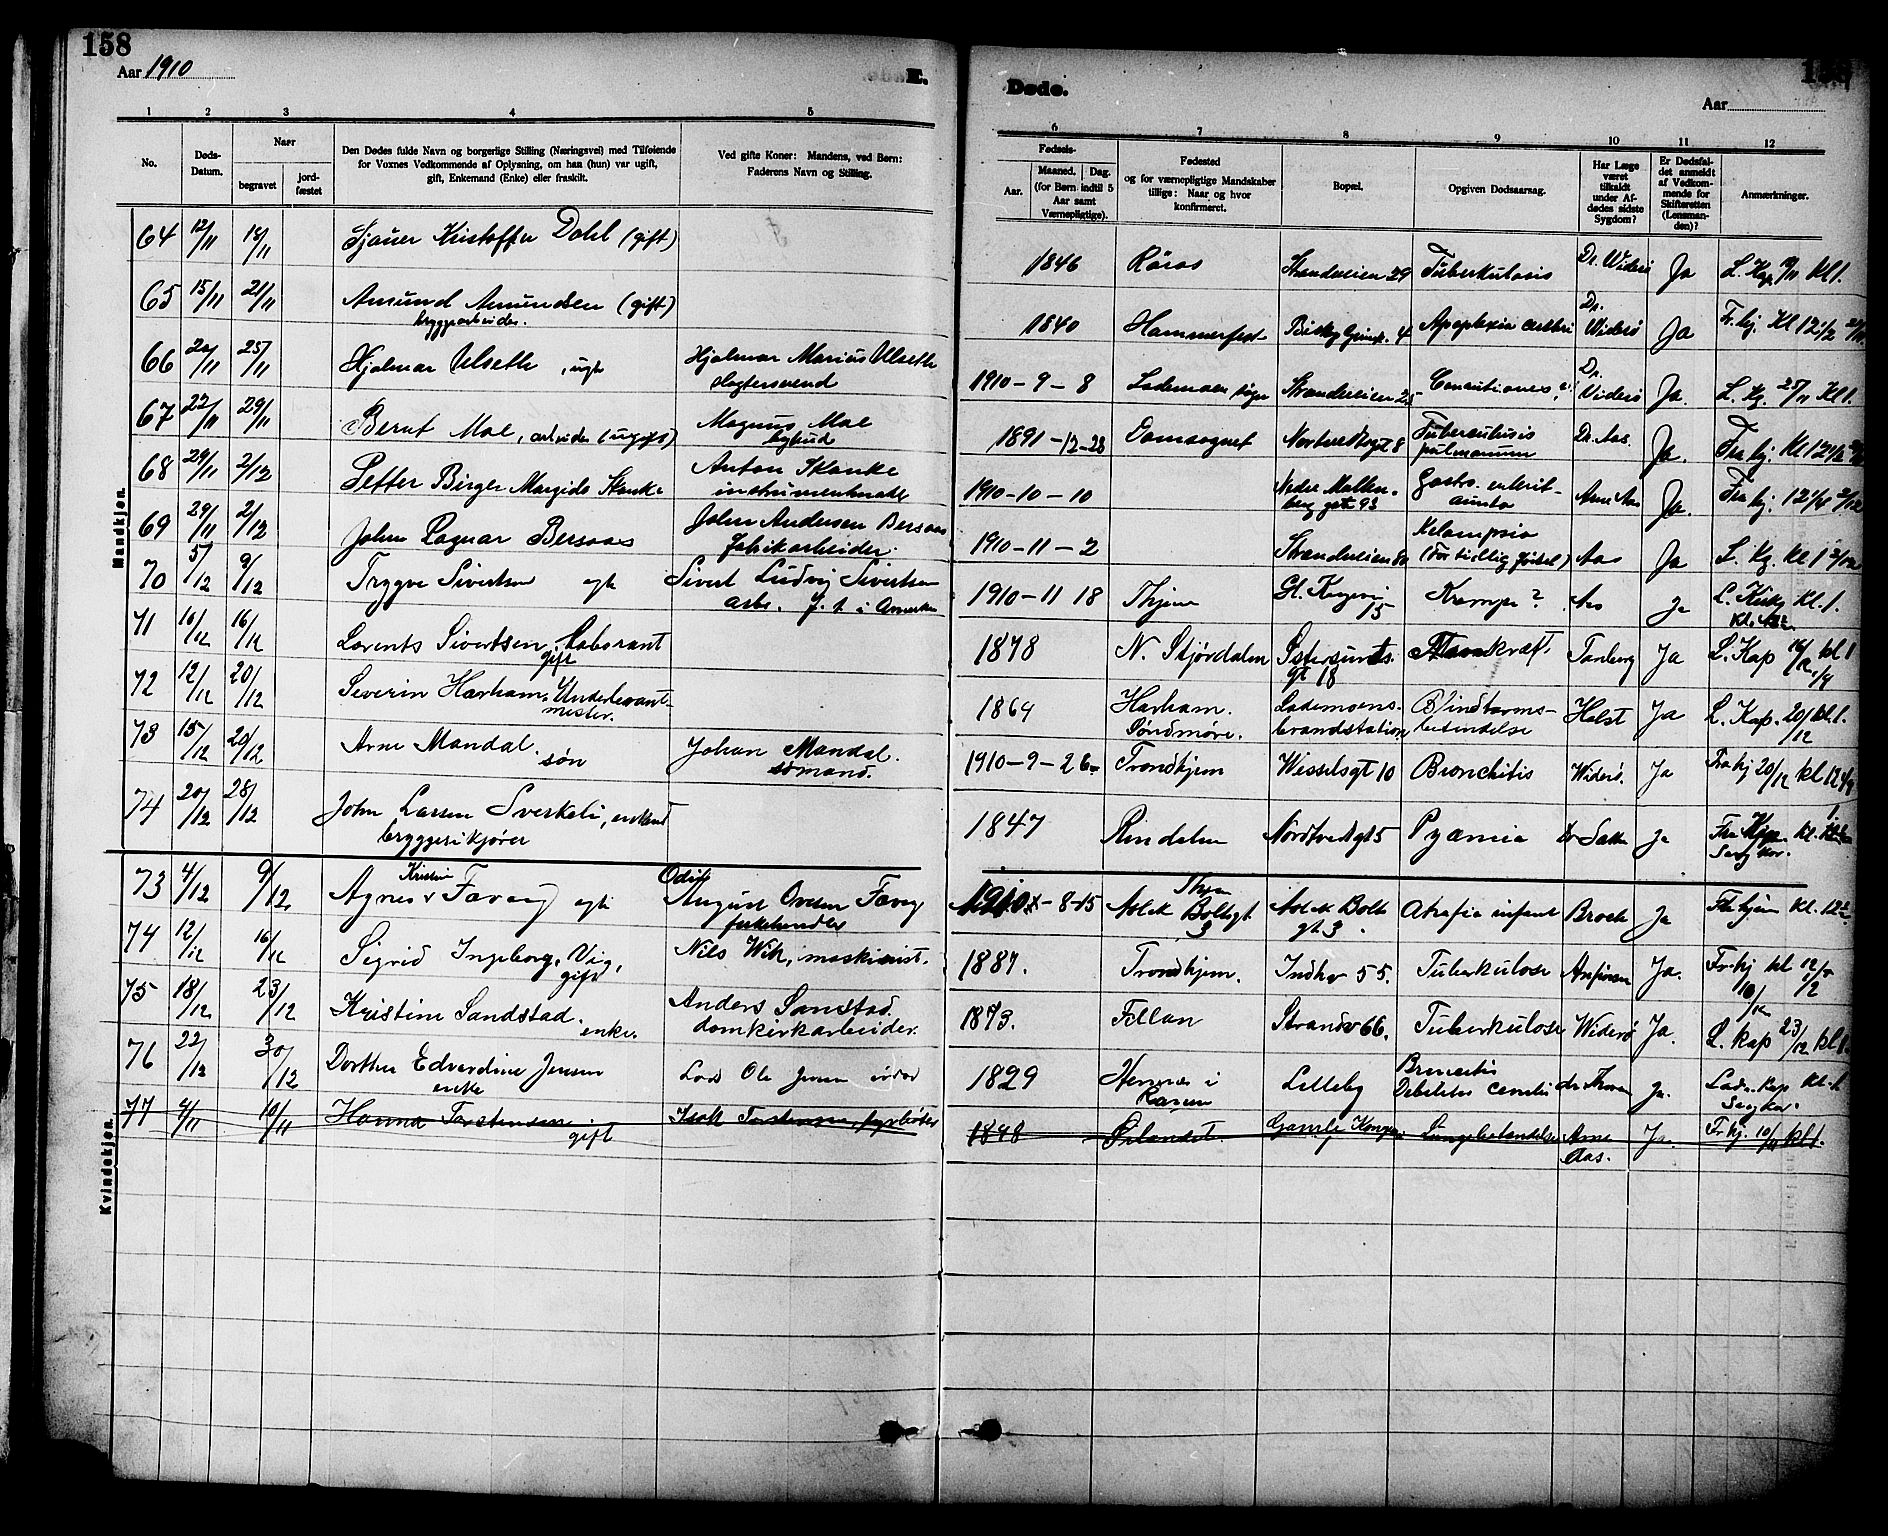 158
Aar 1910
E.
1 2 3 4 5
No.
Døds-Datum.
Naar
begravet
jord-fæstet
Den Dødes fulde Navn og borgerlige Stilling (Næringsvei) med Tilføiende
for Voxnes Vedkommende af Oplysning, om han (hun) var ugift,
gift, Enkemand (Enke) eller fraskilt.
Ved gifte Koner: Mandens, ved Børn:
Faderens Navn og Stilling.
Mandkjøn.
64 12/11 18/11 Kristoffer Dahl (gift)
65 15/11 21/11 Amund Amundsen (gift)
bryggearbeider.
66 20/11 25/11 Hjalmar Ulseth, ugt Hjalmar Marius Ulseth
slagtersvend
67 22/11 29/11 Bernt Moe, arbeider (ugift) Magnus Moe
bybud
68 29/11 2/12 Petter Birger Skanke Anton Skanke
69 29/11 2/12 John Ragnar Bersaas John Andersen Bersaas
fabrikarbeider.
70 5/12 9/12 Trygve Sivertsen egte Sivert Ludvig Sivertsen
arb. f. t. i Amerika
71 10/12 16/12 Lorents Sivertsen, Laborant
gift
72 12/12 20/12 Severin Harham, Underbrand-
mester.
73 15/12 20/12 Arne Mandal. søn Johan Mandal.
sømand.
74 20/12 28/12 John Larsen Sverkeli, enkem
bryggerikjører
Kvindekjøn.
73 4/12 9/12 Agnes Kristine Faven egte August Odin Ovesen Faven
fiskehandler
74 12/12 16/12 Sigrid Ingeborg Vig, Nils Wik, maskinist.
gift
75 18/12 23/12 Kristine Sandstad. Anders Sandstad.
enke. domkirkarbeider.
76 22/12 30/12 Dorthea Edvardine Jensen Ole Jensen
enke
77 4/11 10/11 Hanna Torstensen gift Isak Torstensen, fyrbøter
Døde.
158
Aar
6 7 8 9 10 11 12
Fødsels-
Aar.
Maaned. Dag.
(for Børn indtil 5
Aar samt
Værnepligtige).
Fødested
og for værnepligtige Mandskaber
tillige: Naar og hvor
konfirmeret.
Bopæl.
Opgiven Dødsaarsag.
Har Læge
været
tilkaldt
under Af-
dødes sidste
Sygdom?
Er Dødsfal-
det anmeldt
af Vedkom-
mende for
Skifteretten
(Lensman-
den)?
Anmærkninger.
1846 Röros Strandveien 29 Tuberkulosis Dr. Widerö Ja L. Kap 18/11 kl 1.
1840 Hammerfest 4 Apoplexia cerebri Dr. Widerö Ja Fr. kj. Kl 12 1/2 21/11
1910-9-8 Lademoen sogn Strandveien 25 Convultiones? Dr. Widerö Ja. L. Kap. 25/11 Kl 1.
1891-12-28 Domsognet gt 8 Tuberculosis
pulmonum Dr. Aas. Ja. Fra kj. Kl 12 1/2
1910-10-10 Nedre Møllen-
berg gate 93 Gastro. enterit-
acuta Arne Aas Ja. Fra kj. 12 1/4 2/12
1910-11-2 Strandveien 80 Eclampsia
(For tidlig födsel) Aas Ja L. Kap. kl 1 2/12
1910-11 18 Thjem Gl. Kongevei
15 Krampe? Aas Ja L. Kirk kl. 1.
1878 N. Stjørdalen Østersunds.
gt 18 Tanberg Ja L. Kap 16/12 kl 1
1864 Harham.
Søndmøre. Lademoens-
brandstation Blindtarms-
betendelse Holst Ja L. Kap. 20/12 kl. 1.
1910-9-26 Trondhjem Wesselsgt 10 Bronchitis Widerö. Ja Fra kj 20/12 kl 12 1/2
1847 Rindalen 5 Pyæmia Dr Ja kl.
1910-8-15 Thjem
Aslak Boltsgt
3 Aslak Bolts
gt 3. Atrafia infant Ja Fr hjem kl. 12 1/2
1887. Trondhjem. Indhv 55. Tuberkulose Arfinsen Ja. Fr. hj kl 12 1/2
16/12
1873. Fillan Strandv 66. Tuberkulose Widerö Ja. L. kap 23/12 kl 1.
1829 Lilleby Broncitis
dr Thoresen Ja. Lad. Kap kl. 1
1848 Ørlandet. Gamle Kongev. Lungebetendelse Arne
Aas. Ja. Fr. hj. 10/11 kl 1.